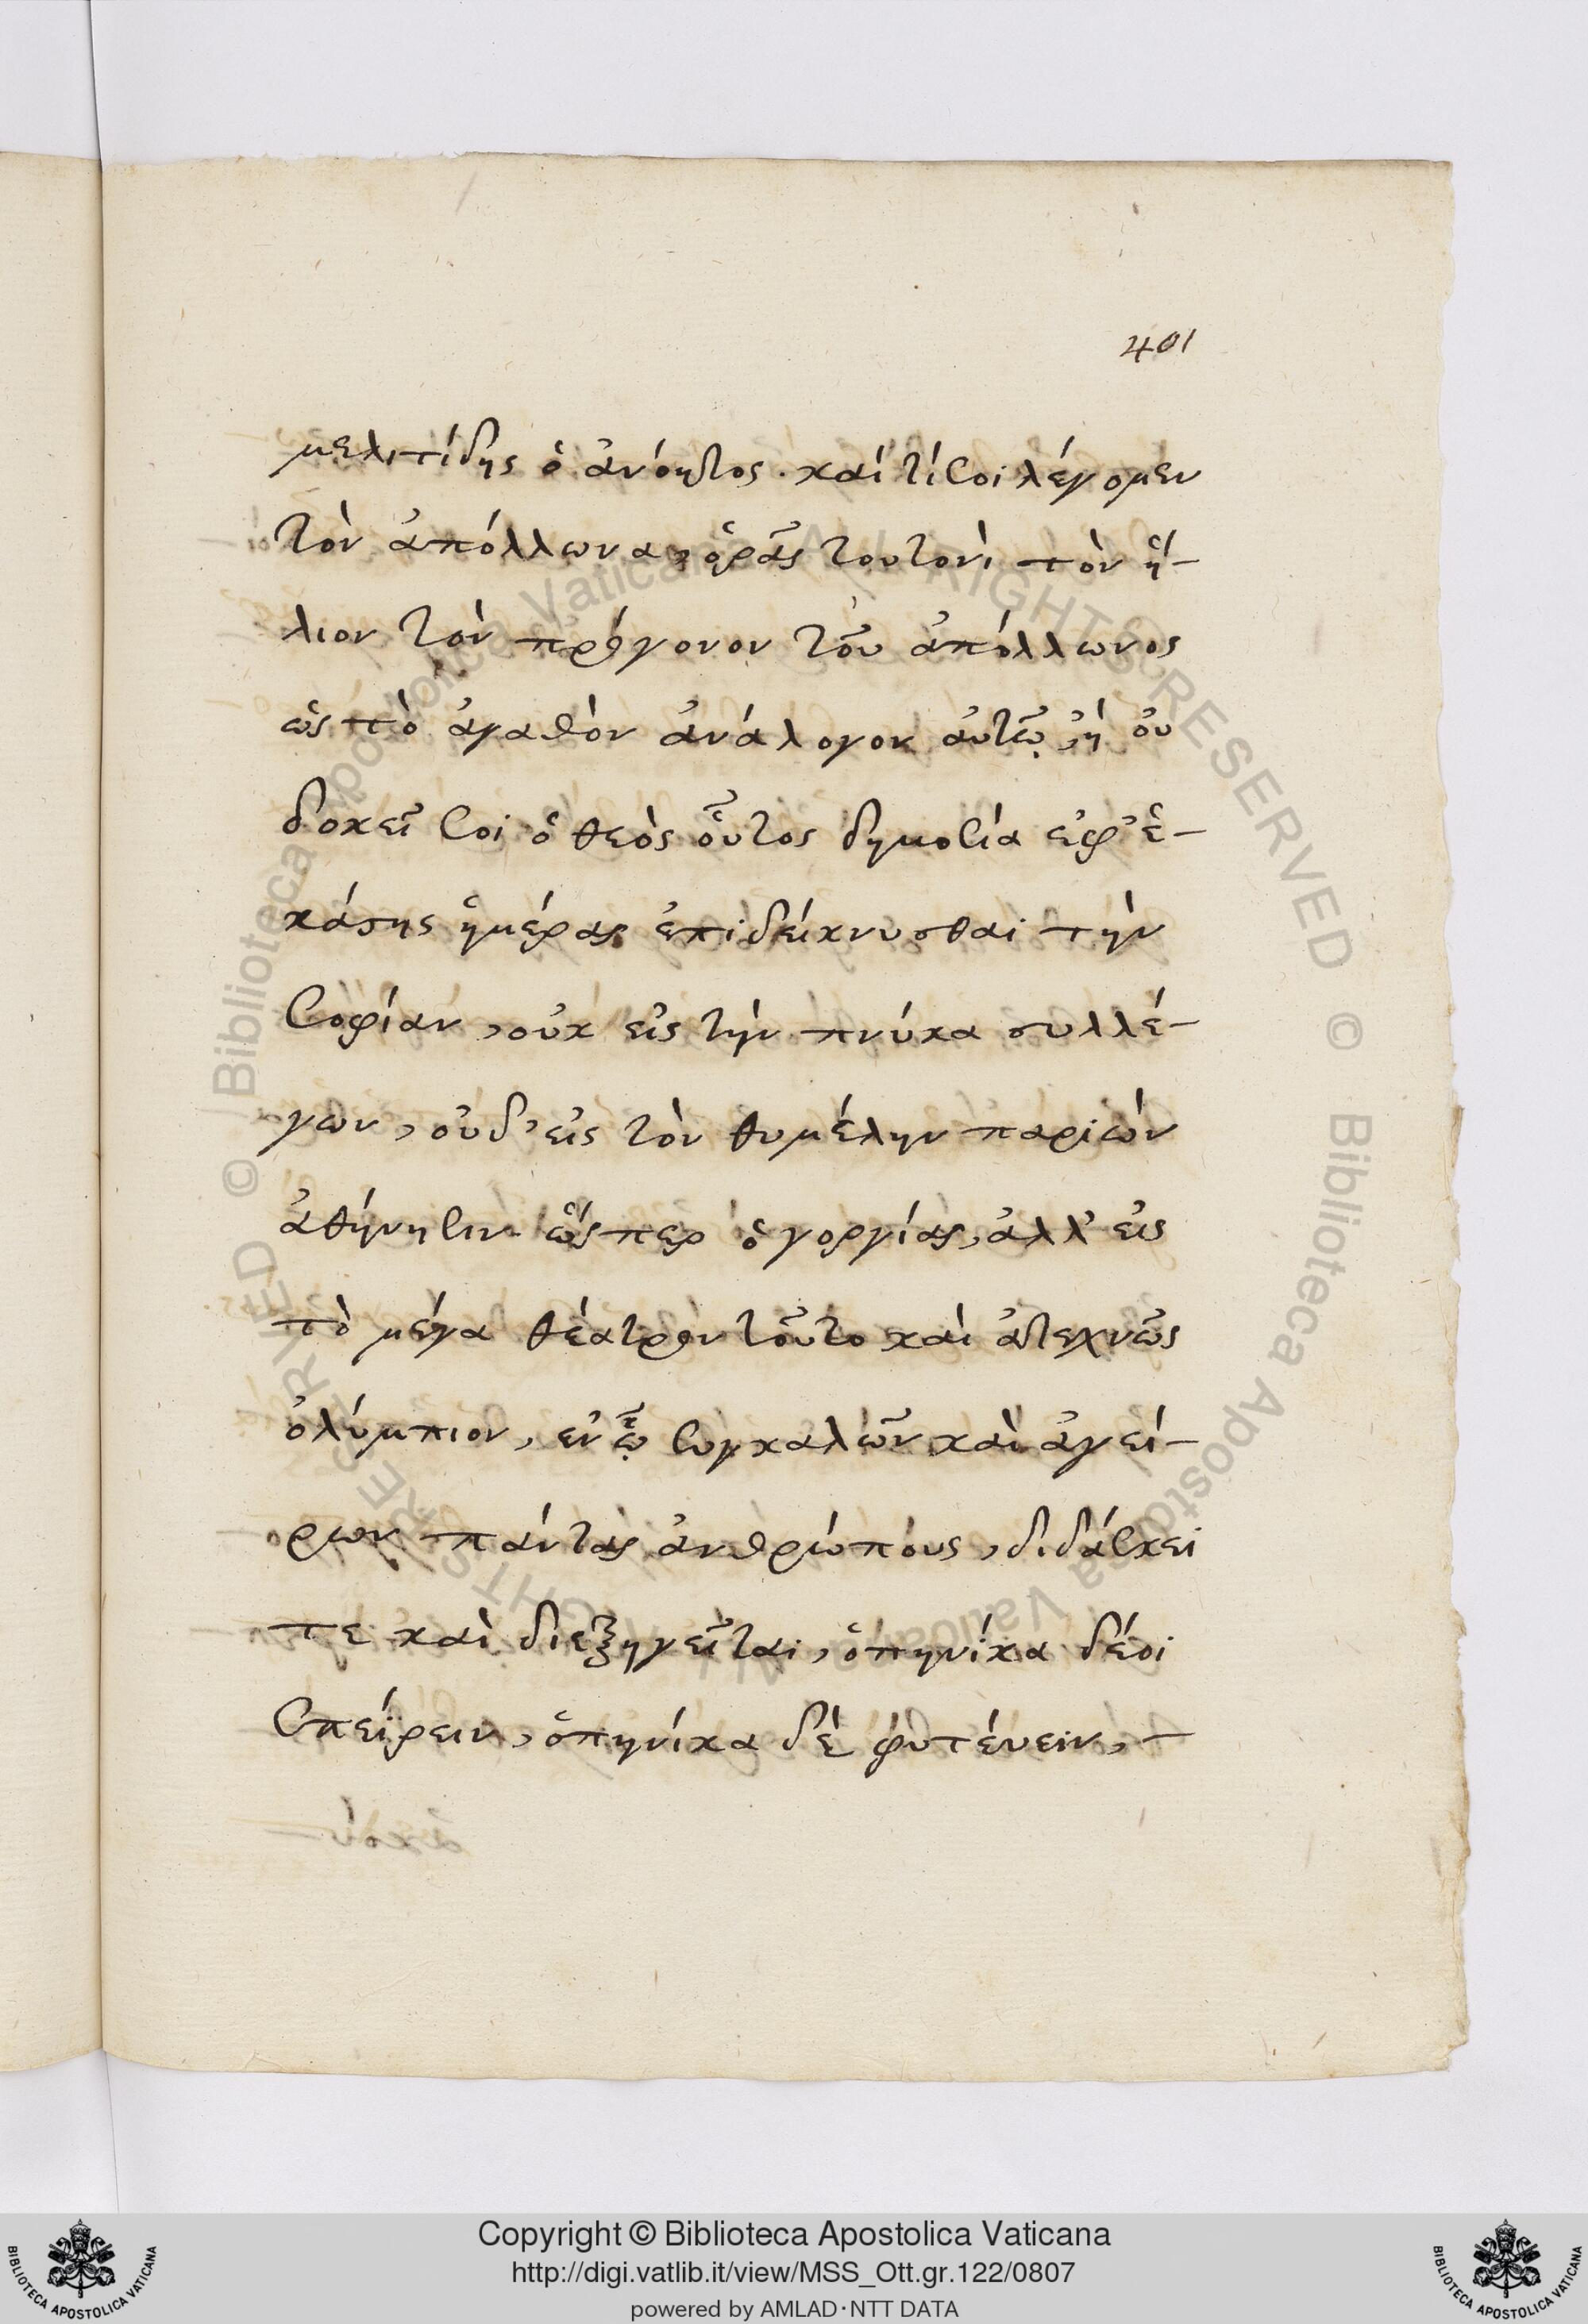 401
μελιτίδης ὁ ἀνόητος. καί τί σοι λέγομεν
τὸν ἀπόλλωνα, ὁρᾷς τουτονὶ τὸν ἥ-
λιον τὸν πρόγονον τοῦ ἀπόλλωνος
ὡς τὸ ἀγαθὸν ἀνάλογον αὐτῷ, ἢ οὐ
δοκεῖ σοι ὁ θεὸς οὗτος δημοσία ἐφ' ἑ-
κάστης ἡμέρας ἐπιδείκνυσθαι τὴν
σοφίαν, οὐκ εἰς τὴν πνύκα συλλέ-
γων, οὐδ' εἰς τὸν θυμέλην παριὼν
ἀθήνησιν ὥσπερ ὁ γοργίας, ἀλλ' εἰς
τὸ μέγα θέατρον τοῦτο καὶ ἀτεχνῶς
ὀλύμπιον, ἐν ᾧ συγκαλῶν καὶ ἀγεί-
ρων πάντας ἀνθρώπους, διδάσκει
τε καὶ διεξηγεῖται, ὁπηνίκα δέοι
σπείρειν, ὁπηνίκα δὲ φυτέυειν, -
Copyright © Biblioteca Apostolica Vaticana
http://digi.vatlib.it/view/MSS_Ott.gr.122/0807
powered by AMLAD·NTT DATA
BIBLIOTECA APOSTOLICA VATICANA
BIBLIOTECA APOSTOLICA VATICANA